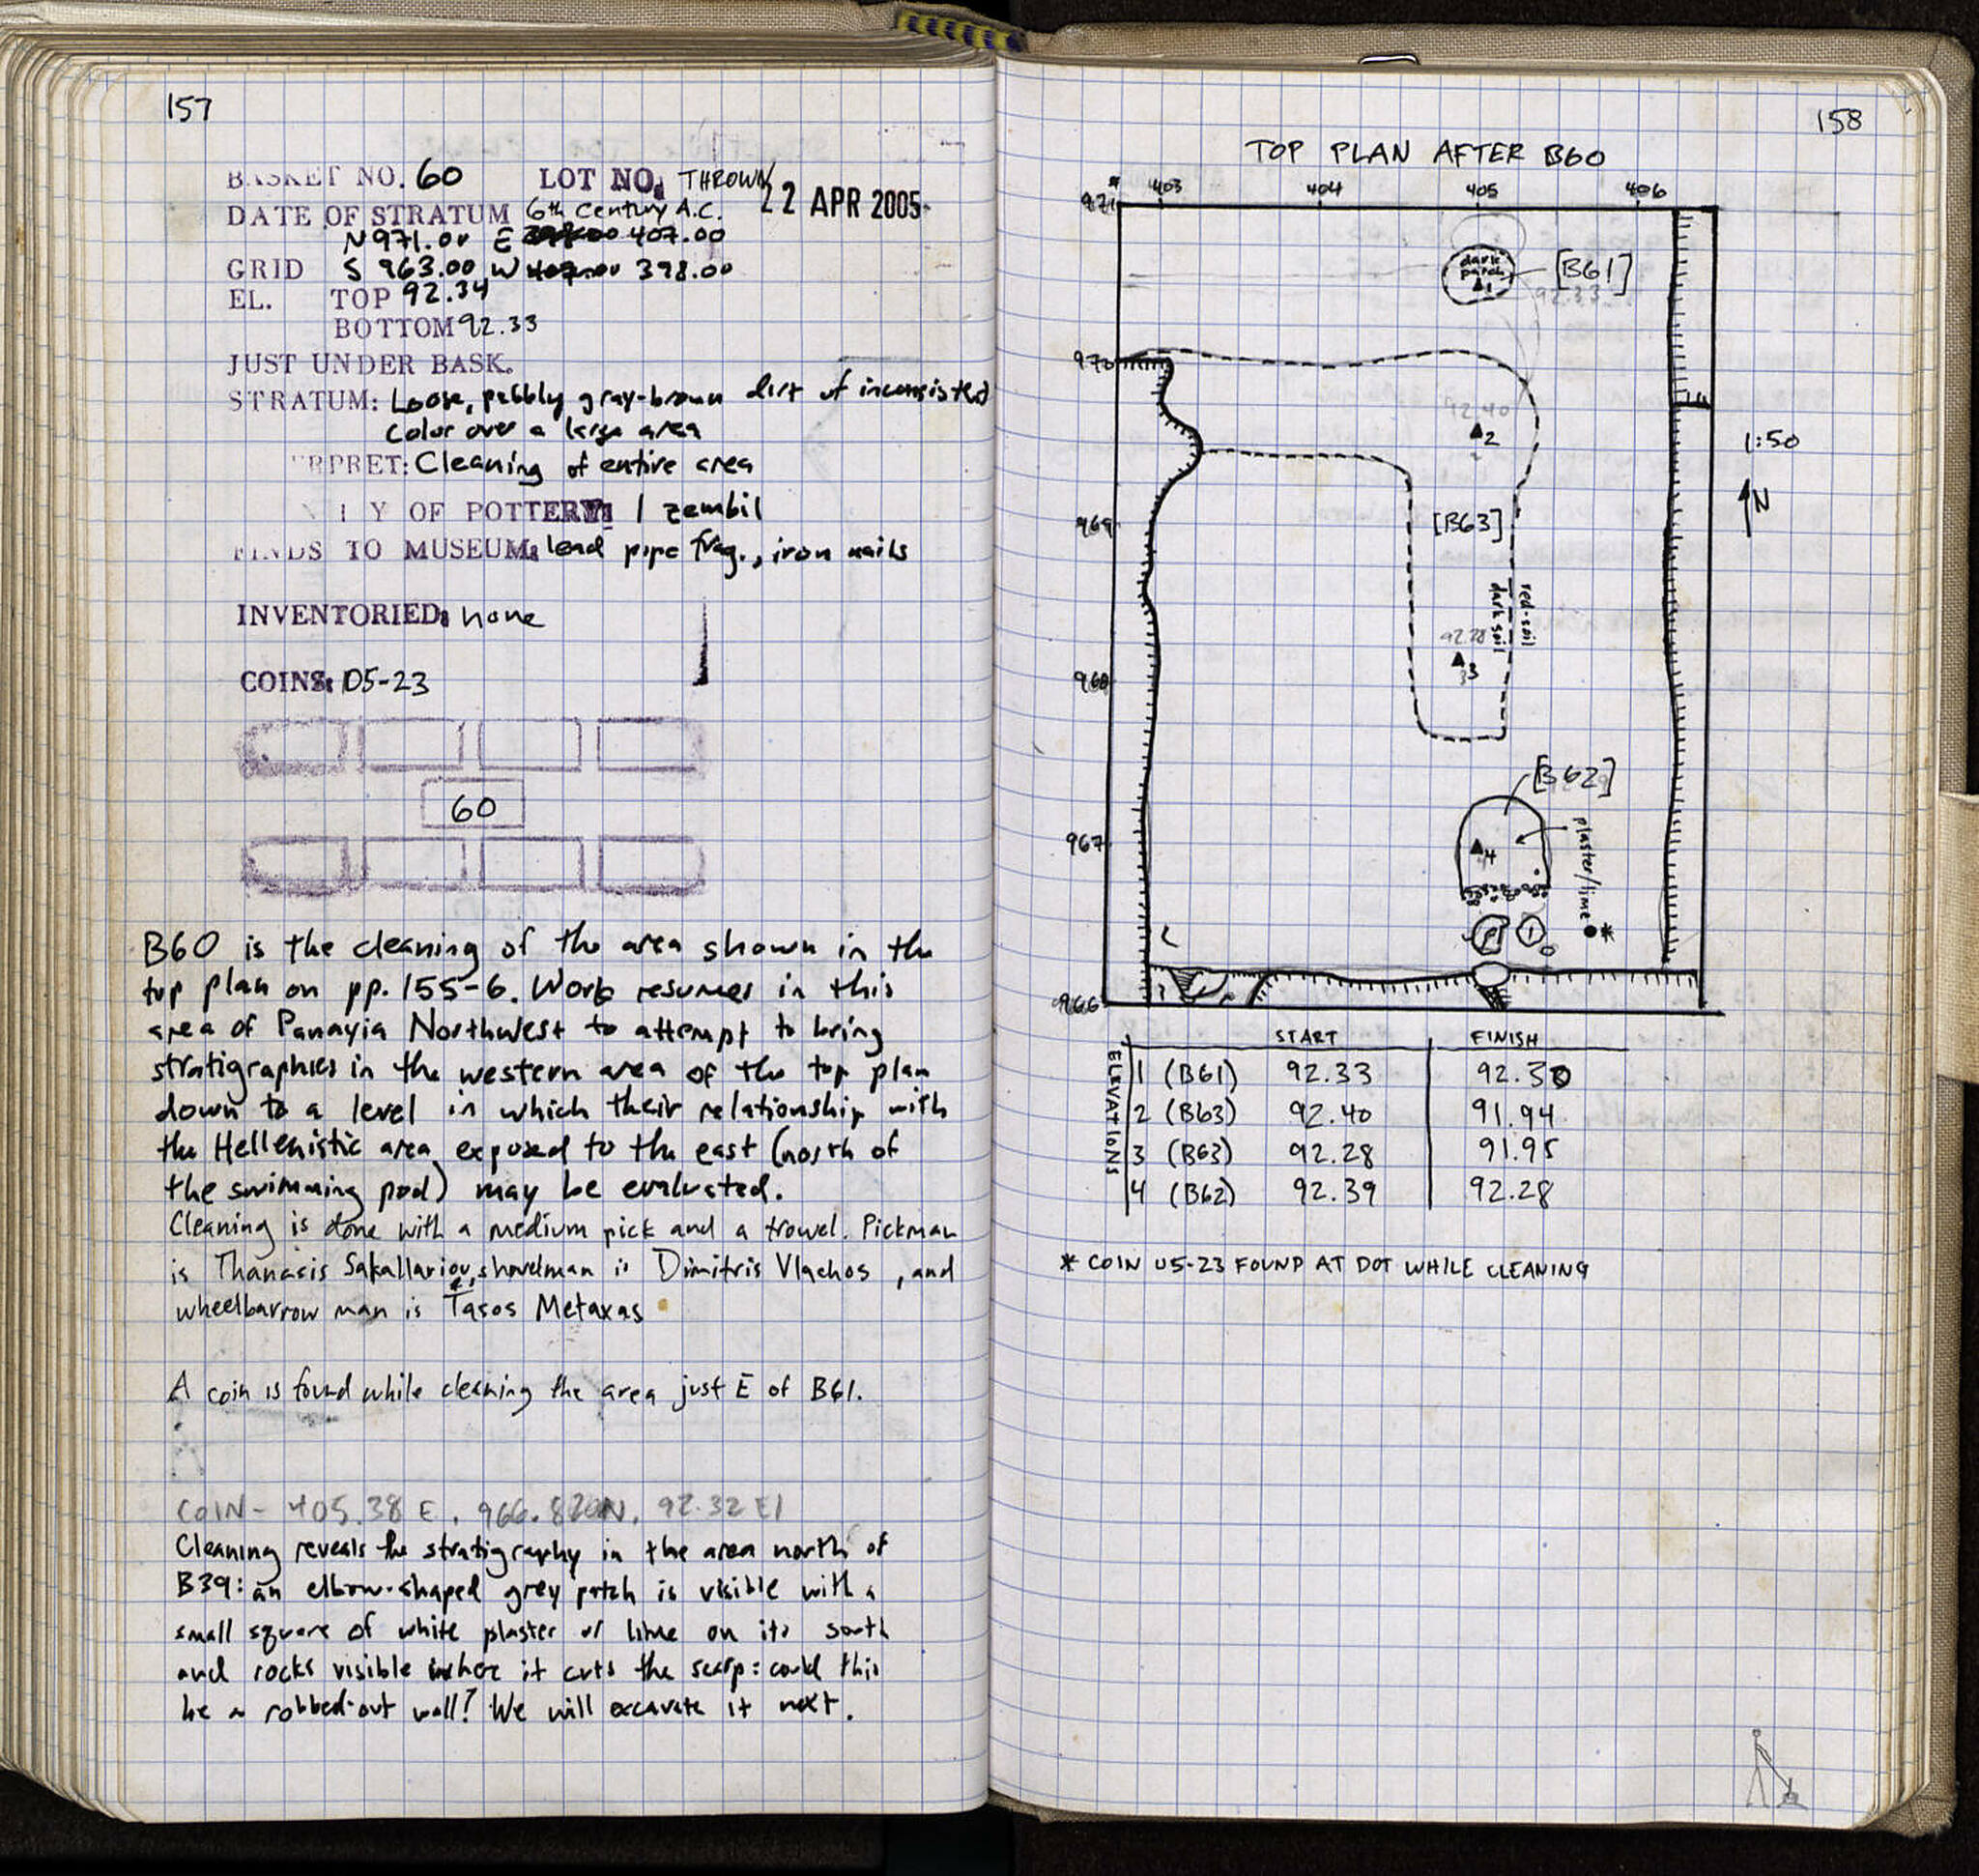 157
BASKET NO. 60 LOT NO. THROWN
22 APR 2005
DATE OF STRATUM 6th Century A.C.
N 971.00 E 407.00
GRID S 963.00 W 407.00 398.00
EL. TOP 92.34
BOTTOM 92.33
JUST UNDER BASK.
STRATUM: Loose, pebbly gray-brown dirt of inconsistent
color over a large area
RPRET: Cleaning of entire area
Y OF POTTERY: 1 zembil
FINDS TO MUSEUM: lead pipe frag., iron nails
INVENTORIED: none
COINS: 05-23
60
B60 is the cleaning of the area shown in the
top plan on pp. 155-6. Work resumes in this
area of Panayia Northwest to attempt to bring
stratigraphies in the western area of the top plan
down to a level in which their relationship with
the Hellenistic area exposed to the east (north of
the swimming pool) may be evaluated.
Cleaning is done with a medium pick and a trowel. Pickman
is Thanasis Sakallariou, shovelman is Dimitris Vlachos, and
wheelbarrow man is Tasos Metaxas
A coin is found while cleaning the area just E of B61.
COIN - 405.38 E, 966. N, 92.32 El
Cleaning reveals the stratigraphy in the area north of
B39: an elbow-shaped grey patch is visible with a
small square of white plaster or lime on its south
and rocks visible where it cuts the scarp: could this
be a robbed-out wall? We will excavate it next.
158
TOP PLAN AFTER B60
* 403 404 405 406
971
dark patch
▲1
[B61]
92.33
970
92.40
▲2
1:50
N
969
[B63]
dark soil
red-soil
92.28
▲3
968
[B62]
967
▲4
plaster/lime
*
966
START FINISH
ELEVATIONS
1 (B61) 92.33 92.30
2 (B63) 92.40 91.94
3 (B63) 92.28 91.95
4 (B62) 92.39 92.28
* COIN 05-23 FOUND AT DOT WHILE CLEANING